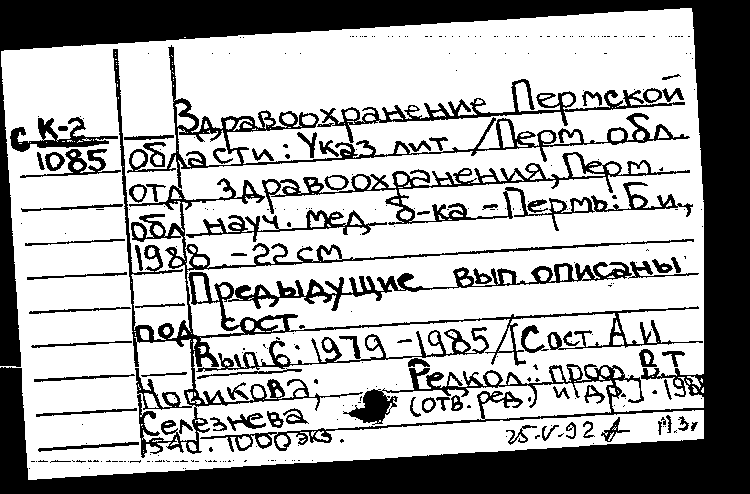 Здравоохранение Пермской
с К-2
1085
области: Указ. лит. /Перм. обл.
отд. здравоохранения, Перм.
обл. науч. мед. б-ка – Пермь: Б.и.,
1988. – 22 см
Предыдущие вып. описаны
под сост.
Вып. 6: 1979 – 1985 / [Сост. А.И.
Новикова; Редкол.: проф. В.Т.
Селезнева (отв. ред.) и др.]. 1988
154 с. 1000 экз.
25-V-92 М.З.